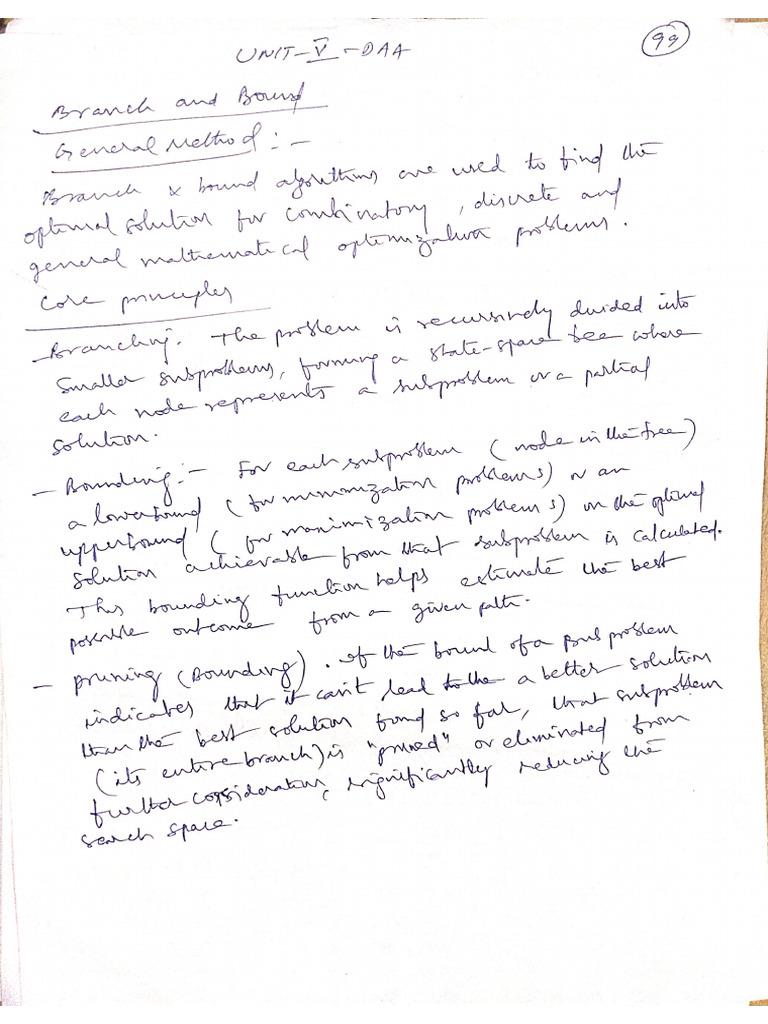 UNIT-V-DAA
99
Branch and Bound
General Method:-
Branch & bound algorithms are used to find the
optimal solution for combinatory, discrete and
general mathematical optimization problems.
Core principles
- Branching. The problem is recursively divided into
smaller subproblems, forming a state-space tree where
each node represents a subproblem or a partial
solution.
- Bounding:- For each subproblem (node in the tree)
a lowerbound (for minimization problems) or an
upperbound (for maximization problems) on the optimal
solution achievable from that subproblem is calculated.
This bounding function helps estimate the best
possible outcome from a given path.
- pruning (Bounding). If the bound of a subproblem
indicates that it can't lead to the a better solution
than the best solution found so far, that subproblem
(its entire branch) is "pruned" or eliminated from
further consideration, significantly reducing the
search space.